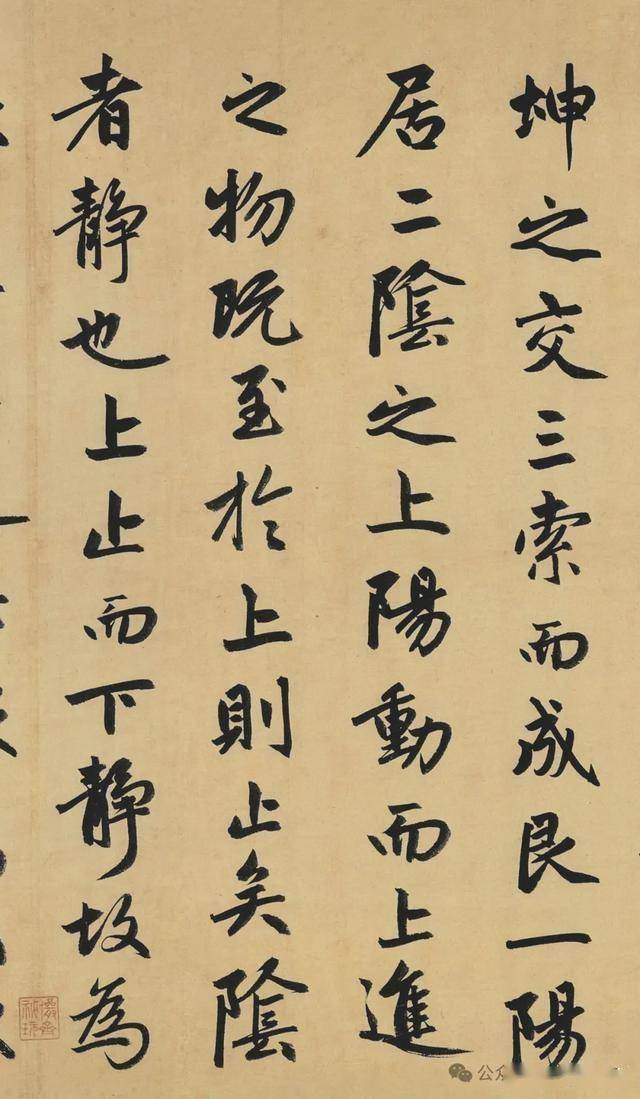 坤之交三索而成艮一陽
居二陰之上陽動而上進
之物既至於上則止矣陰
者靜也上止而下靜故為
公众